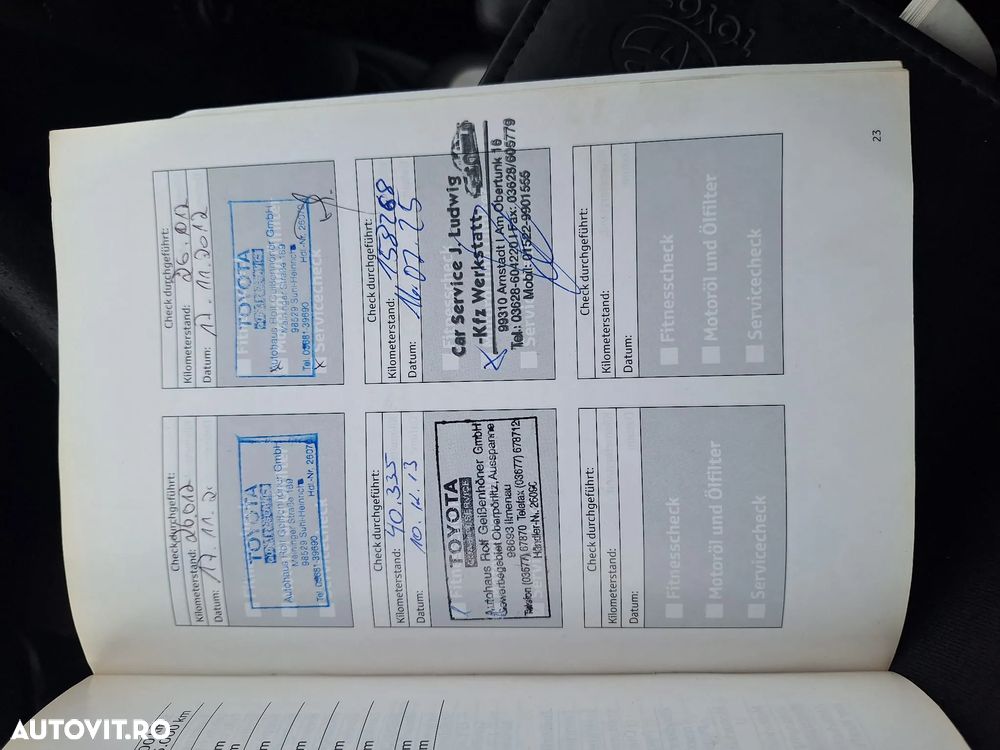 TOYO
Check durchgeführt:
Kilometerstand: 26012
Datum: 17.11.2
TOYOTA
Autohaus Rolf Geißenhöner GmbH
Meininger Straße 169
98529 Suhl-Heinrichs
Tel. 03681-39690 Hdl-Nr. 2607
Check durchgeführt:
Kilometerstand: 26.012
Datum: 17.11.2012
TOYOTA
Autohaus Rolf Geißenhöner GmbH
Meininger Straße 169
98529 Suhl-Heinrichs
Tel. 03681-39690 Hdl-Nr. 2607
Servicecheck
Check durchgeführt:
Kilometerstand: 40.335
Datum: 10.12.13
TOYOTA
Autohaus Rolf Geißenhöner GmbH
Gewerbegebiet Oberpörlitz, Ausspanne
98693 Ilmenau
Telefon (03677) 67870 Telefax (03677) 678712
Händler-Nr. 26096
Check durchgeführt:
Kilometerstand: 158268
Datum: 16.07.25
Fitnesscheck
Car Service J. Ludwig
-Kfz Werkstatt-
99310 Arnstadt | Am Obertunk 16
Tel.: 03628-604220 | Fax: 03628/605779
Mobil: 01522-9901555
Check durchgeführt:
Kilometerstand:
Datum:
Fitnesscheck
Motoröl und Ölfilter
Servicecheck
Check durchgeführt:
Kilometerstand:
Datum:
Fitnesscheck
Motoröl und Ölfilter
Servicecheck
23
AUTOVIT.RO